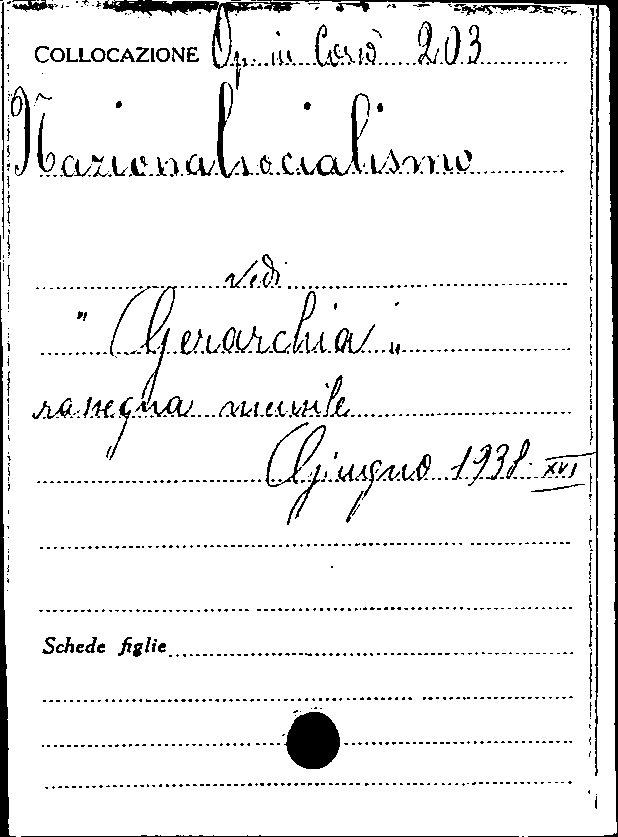 COLLOCAZIONE Op. in Corso 203
Nazionalsocialismo
vedi
"Gerarchia"
rassegna mensile
Giugno 1938. XVI
Schede figlie